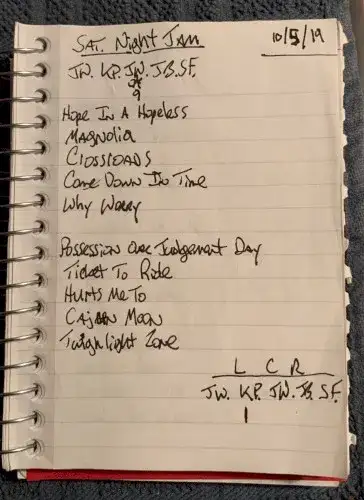 Sat. Night Jam
10/5/19
JW. KP. JW. JB. SF.
9
Hope In A Hopeless
Magnolia
Crossroads
Come Down In Time
Why Worry
Possession Over Judgement Day
Ticket To Ride
Hurts Me To
Cajun Moon
Twighlight Zone
L C R
JW. K.P. JW. JB. SF.
1